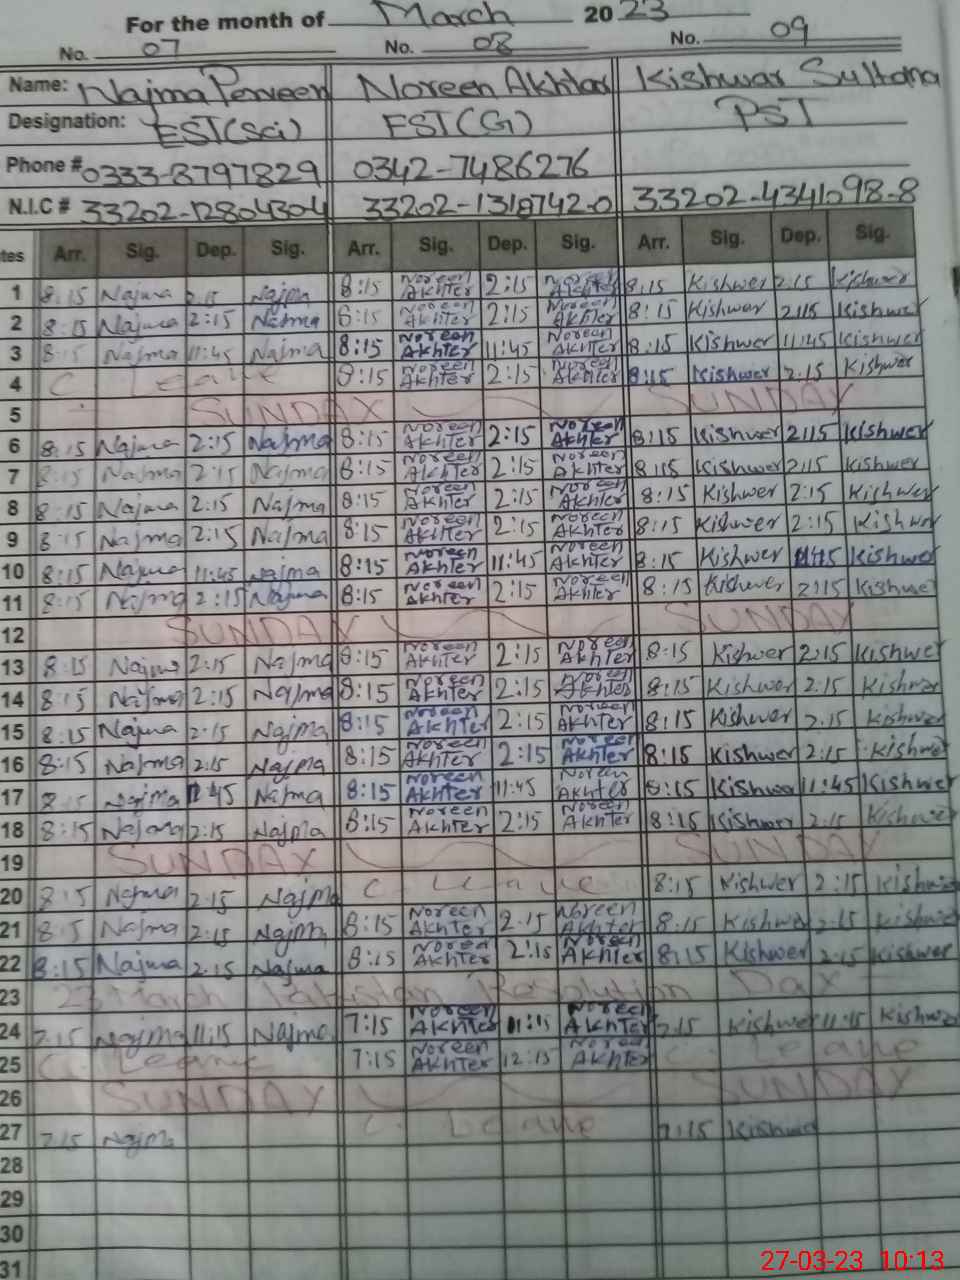 For the month of March 2023
No. 07 No. 08 No. 09
Name: Najma Perveen Noreen Akhtar Kishwar Sultana
Designation: EST(Sci) EST(G) PST
Phone # 0333-8797829 0342-7486276
N.I.C # 33202-12804304 33202-1318742-0 33202-4341098-8
tes Arr. Sig. Dep. Sig. Arr. Sig. Dep. Sig. Arr. Sig. Dep. Sig.
1 8:15 Najma 2:15 Najma 8:15 Noreen Akhter 2:15 8:15 Kishwer 2:15 Kishwer
2 8:15 Najma 2:15 Najma 8:15 Noreen Akhter 2:15 Noreen Akhter 8:15 Kishwer 2:15 Kishwer
3 8:15 Najma 11:45 Najma 8:15 Noreen Akhter 11:45 Noreen Akhter 8:15 Kishwer 11:45 Kishwer
4 C. Leave 8:15 Noreen Akhter 2:15 Noreen Akhter 8:15 Kishwer 2:15 Kishwer
5 SUNDAY SUNDAY
6 8:15 Najma 2:15 Najma 8:15 Noreen Akhter 2:15 Noreen Akhter 8:15 Kishwer 2:15 Kishwer
7 8:15 Najma 2:15 Najma 8:15 Noreen Akhter 2:15 Noreen Akhter 8:15 Kishwer 2:15 Kishwer
8 8:15 Najma 2:15 Najma 8:15 Noreen Akhter 2:15 Noreen Akhter 8:15 Kishwer 2:15 Kishwer
9 8:15 Najma 2:15 Najma 8:15 Noreen Akhter 2:15 Noreen Akhter 8:15 Kishwer 2:15 Kishwer
10 8:15 Najma 11:45 Najma 8:15 Noreen Akhter 11:45 Noreen Akhter 8:15 Kishwer 11:45 Kishwer
11 8:15 Najma 2:15 Najma 8:15 Noreen Akhter 2:15 Noreen Akhter 8:15 Kishwer 2:15 Kishwer
12 SUNDAY SUNDAY
13 8:15 Najma 2:15 Najma 8:15 Noreen Akhter 2:15 Noreen Akhter 8:15 Kishwer 2:15 Kishwer
14 8:15 Najma 2:15 Najma 8:15 Noreen Akhter 2:15 Noreen Akhter 8:15 Kishwer 2:15 Kishwer
15 8:15 Najma 2:15 Najma 8:15 Noreen Akhter 2:15 Noreen Akhter 8:15 Kishwer 2:15 Kishwer
16 8:15 Najma 2:15 Najma 8:15 Noreen Akhter 2:15 Noreen Akhter 8:15 Kishwer 2:15 Kishwer
17 8:15 Najma 11:45 Najma 8:15 Noreen Akhter 11:45 Noreen Akhter 8:15 Kishwer 11:45 Kishwer
18 8:15 Najma 2:15 Najma 8:15 Noreen Akhter 2:15 Noreen Akhter 8:15 Kishwer 2:15 Kishwer
19 SUNDAY SUNDAY
20 8:15 Najma 2:15 Najma C. Leave 8:15 Kishwer 2:15 Kishwer
21 8:15 Najma 2:15 Najma 8:15 Noreen Akhter 2:15 Noreen Akhter 8:15 Kishwer 2:15 Kishwer
22 8:15 Najma 2:15 Najma 8:15 Noreen Akhter 2:15 Noreen Akhter 8:15 Kishwer 2:15 Kishwer
23 23 March Pakistan Resolution Day
24 7:15 Najma 11:15 Najma 7:15 Noreen Akhter 11:15 Noreen Akhter 7:15 Kishwer 11:15 Kishwer
25 C. Leave 7:15 Noreen Akhter 12:15 Noreen Akhter C. Leave
26 SUNDAY SUNDAY
27 7:15 Najma C. Leave 7:15 Kishwer
28
29
30
31
27-03-23 10:13